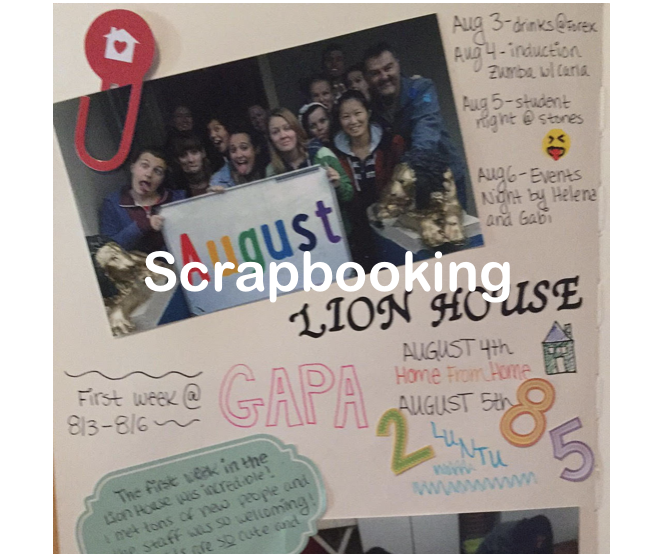 Aug 3-drinks@Forex
Aug 4-induction
Zumba w/Carla
Aug 5-student
night @ stones
Aug 6-Events
Night by Helena
and Gabi
August
Scrapbooking
LION HOUSE
AUGUST 4th
Home From Home
First week @
8/3-8/6
GAPA
AUGUST 5th
2 8 5
LUNTU
The first week in the
Lion House was incredible!
I met tons of new people and
the staff was so welcoming!
are so cute and